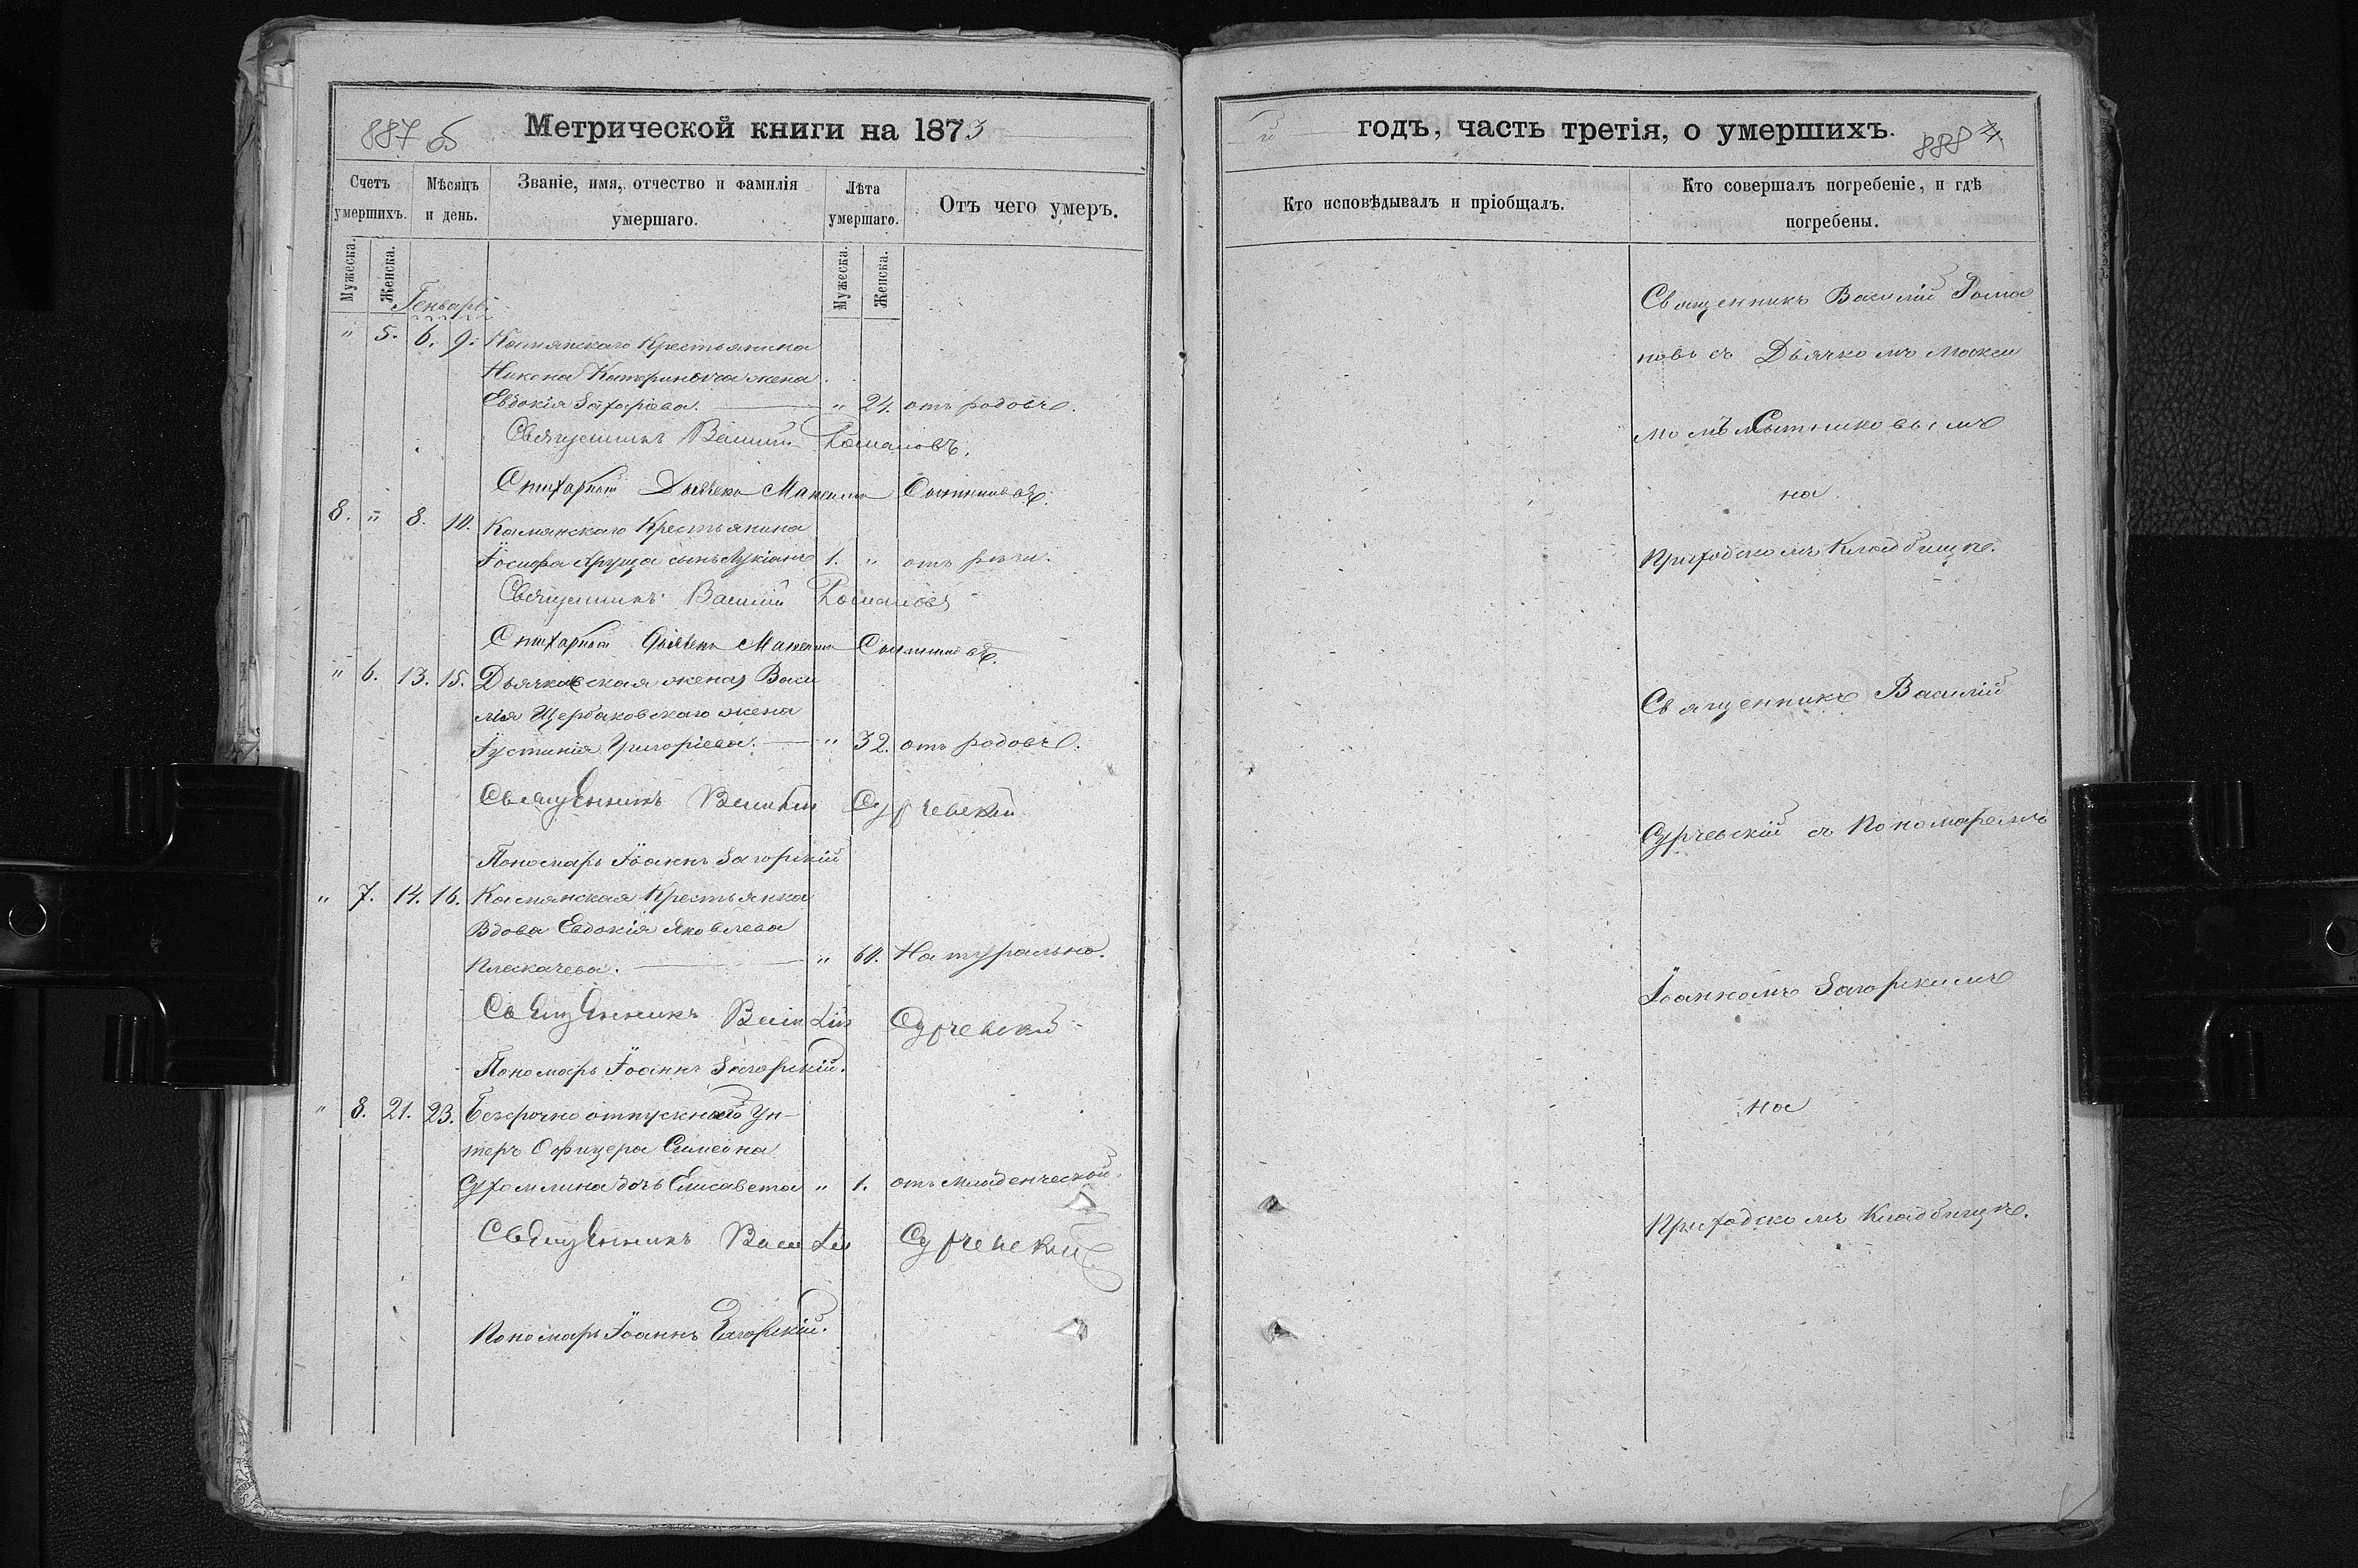 887 об
Метрической книги на 1873
Счетъ умершихъ.
Мѣсяцъ и день.
Званіе, имя, отчество и фамилія умершаго.
Лѣта умершаго.
Отъ чего умеръ.
Мужеска.
Женска.
Мужеска.
Женска.
Генварь.
" 5. 6. 9. Камянскаго Крестьянина
Никона жена
Евдокія Захаріева. " 24. отъ родовъ.
Священникъ Василій Романовъ.
Стихарный Дьячекъ Максимъ Сытниковъ.
8. " 8. 10. Камянскаго Крестьянина
Іосифа сынъ Лукіанъ 1. "
Священникъ Василій Романовъ
Стихарный Дьячекъ Максимъ Сытниковъ.
" 6. 13. 15. Дьячковская жена, Васи
лія Щербаковскаго жена
Іустинія Григоріева. " 32. отъ родовъ.
Священникъ Василій Сурчевскій
Пономарь Іоаннъ Загорскій
" 7. 14. 16. Камянская Крестьянка
Вдова Евдокія Яковлева
Плескачева. " 60. Натурально.
Священникъ Василій Сурчевскій
Пономарь Іоаннъ Загорскій.
" 8. 21. 23. Безсрочно отпускнаго Ун-
теръ Офицера Симеона
Сухомлина дочь Елисавета " 1. отъ младенческой.
Священникъ Василій Сурчевскій
Пономарь Іоаннъ Загорскій.
3 годъ, часть третія, о умершихъ.
888
Кто исповѣдывалъ и пріобщалъ.
Кто совершалъ погребеніе, и гдѣ
погребены.
Священникъ Василій Рома
новъ съ Дьячкомъ Макси
момъ Сытниковымъ
на
Приходскомъ Кладбищѣ.
Священникъ Василій
Сурчевскій съ Пономаремъ
Іоанномъ Загорскимъ
на
Приходскомъ Кладбищѣ.